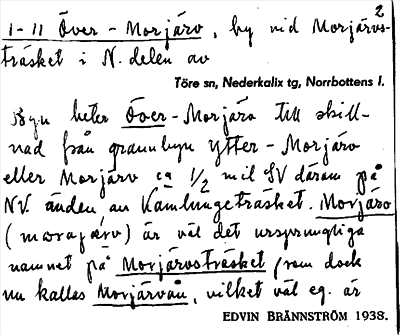 2
1-11 Över-Morjärv, by vid Morjärvs-
träsket i N. delen av
Töre sn, Nederkalix tg, Norrbottens l.
Byn heter Över-Morjärv till skill-
nad från grannbyn Ytter-Morjärv
eller Morjärv ca 1/2 mil SV därom på
NV. änden av Kamlungeträsket. Morjärv
(morajærv) är väl det ursprungliga
namnet på Morjärvsträsket, som dock
nu kallas Morjärvån, vilket väl eg. är
EDVIN BRÄNNSTRÖM 1938.